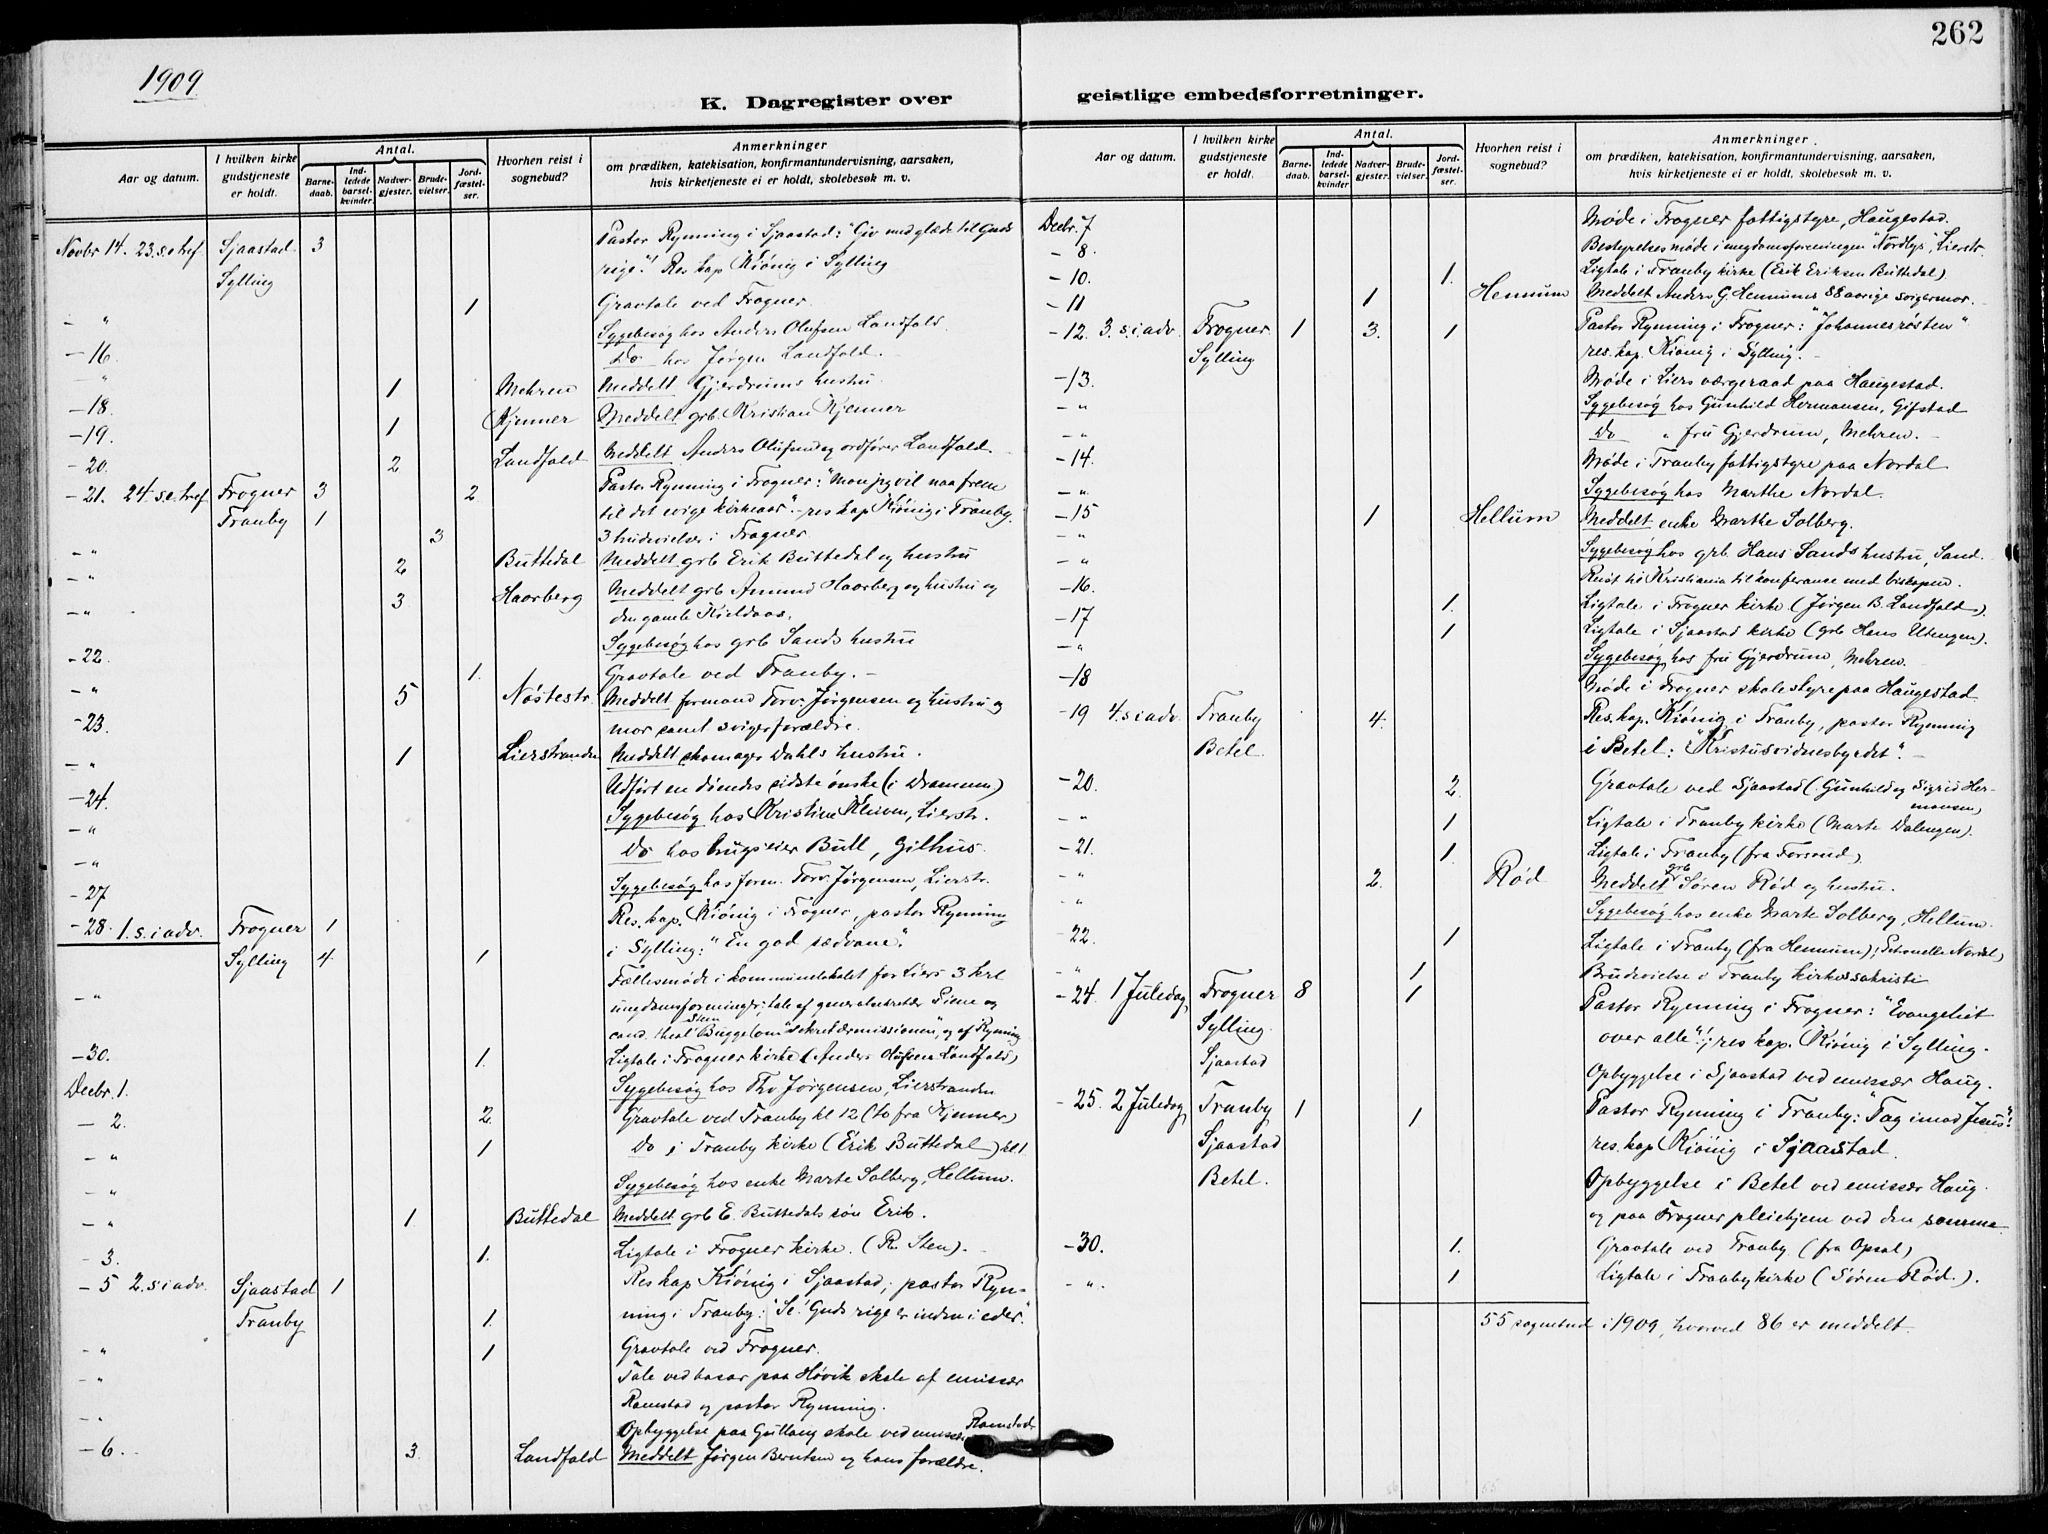 262
1909
K. Dagregister over
geistlige embedsforretninger.
Aar og datum.
I hvilken kirke gudstjeneste er holdt.
Antal.
Barne-daab.
Ind-ledede barsel-kvinder.
Nadver-gjester.
Brude-vielser.
Jord-fæstel-ser.
Hvorhen reist i sognebud?
Anmerkninger
om prædiken, katekisation, konfirmantundervisning, aarsaken,
hvis kirketjeneste ei er holdt, skolebesøk m. v.
Novbr 14. 23. s. e. tref. Sjaastad 3 Pastor Rynning i Sjaastad: "Giv med glæde til Guds
Sylling rige". Res. kap. Kiønig i Sylling
- " 1 Gravtale ved Frogner.
-16. Sygebesøg hos Anders Olufsen Landfald.
- " Do hos Jørgen Landfald.
-18. 1 Mehren Meddelt Gjerdrums hustru.
-19. 1 Kjenner Meddelt grb. Kristian Kjenner
-20. 2 Landfald Meddelt Anders Olufsen og ordfører Landfald.
-21. 24. s. e. tref. Frogner 3 2 Pastor Rynning i Frogner: "Mon jeg vil naa frem
Tranby 1 til det evige kirkeaar". - res kap Kiønig i Tranby.
- " 3 3 brudevielser i Frogner
- " 2 Buttedal Meddelt grb Erik Buttedal og hustru
- " 3 Haarberg Meddelt grb Amund Haarberg og hustru og
den gamle Kieldaas.
-22. Sygebesøg hos grb Sands hustru
- " 1. Gravtale ved Tranby. -
-23. 5 Nøstestr. Meddelt formand Torv. Jørgensen og hustru og
mor samt svigerforældre.
- " 1 Lierstranden Meddelt skomager Dahls hustru.
-24. Udført en døendes sidste ønske (i Drammen)
- " Sygebesøg hos Kristine Kleven, Lierstr.
- " Do hos brugseier Bull, Gilhus.
-27 Sygebesøg hos form. Torv. Jørgensen, Lierstr.
-28. 1. s. i adv. Frogner 1 Res. kap. Kiønig i Frogner, pastor Rynning
Sylling 4 1 i Sylling: "En god sædvane".
- " Fællesmøde i kommunelokalet for Liers 3 krl
ungdomsforeninger; tale af generalsekretær Piene og
cand. theol Sten Bugge (om "sekretærmissionen", og af Rynning
-30. 1. Ligtale i Frogner kirke (Anders Olufsen Landfald)
Decbr. 1. Sygebesøg hos Thv. Jørgensen, Lierstranden
- 2. 2. Gravtale ved Tranby kl 12 (to fra Kjenner)
- " 1 Do i Tranby kirke (Erik Buttedal) kl 1.
- " Sygebesøg hos enke Marte Solberg, Hellum.
- " 1 Buttedal Meddelt grb E. Buttedals søn Erik.
- 3. 1. Ligtale i Frogner kirke. (R. Sten).
-5 2. s i adv. Sjaastad 1 Res kap Kiønig i Sjaastad; pastor Ryn-
Tranby 1. ning i Tranby: "Se! Guds rige er inden i eder."
- " 1 Gravtale ved Frogner.
- " Tale ved basar paa Høvik skole af emissær
Ramstad og pastor Rynning.
- " Opbyggelse paa Gullaug skole ved emissær Ramstad
-6. 3. Landfald Meddelt Jørgen Berntsen og hans forældre.
Aar og datum.
I hvilken kirke gudstjeneste er holdt.
Antal.
Barne-daab.
Ind-ledede barsel-kvinder
Nadver-gjester.
Brude-vielser.
Jord-fæstel-ser.
Hvorhen reist i sognebud?
Anmerkninger.
om prædiken, katekisation, konfirmantundervisning, aarsaken,
hvis kirketjeneste ei er holdt, skolebesøk m. v.
Decbr. 7 Møde i Frogner fattigstyre, Haugestad.
- 8. Bestyrelsesmøde i ungdomsforeningen "Nordlys", Lierstr.
-10. 1. Ligtale i Tranby kirke (Erik Eriksen Buttedal)
-11 1 Hennum Meddelt Anders G. Hennums 88 aarige svigermor.
-12. 3. s. i adv. Frogner 1 3. 1 Pastor Rynning i Frogner: "Johannesrøsten"
Sylling res. kap. Kiønig i Sylling. -
-13. Møde i Liers værgeraad paa Haugestad.
- " Sygebesøg hos Gunhild Hermansen, Gifstad
- " Do " fru Gjerdrum, Mehren. -
-14. Møde i Tranby fattigstyre paa Nordal
- " Sygebesøg hos Marthe Nordal.
-15 1 Hellum Meddelt enke Marthe Solberg.
- " Sygebesøg hos grb. Hans Sands hustru, Sand.
- " Reist til Kristiania til konferanse med biskopen.
-16. 1. Ligtale i Frogner kirke (Jørgen B. Landfald).
-17 1 Ligtale i Sjaastad kirke (grb Hans Utengen).
- " Sygebesøg hos fru Gjerdrum, Mehren.
-18 Møde i Frogner skolestyre paa Haugestad
-19 4. s i adv. Tranby 4. Res. kap. Kiønig i Tranby, pastor Rynning
Betel. i Betel: "Kristusvidnesbyrdet". -
-20. 2. Gravtale ved Sjaastad (Gunhild og Sigrid Her-
mansen)
- " 1 Ligtale i Tranby kirke (Marte Dalengen).
-21. 1. Ligtale i Tranby (fra Forsund)
- " 2. Rød Meddelt grb Søren Rød og hustru.
- " Sygebesøg hos enke Marte Solberg, Hellum.
-22. 1 Ligtale i Tranby (fra Hennum); Petronelle Nordal)
- " 1 Brudevielse i Tranby kirkes sakristi
-24. 1 Juledag Frogner 8 1 Pastor Rynning i Frogner: "Evangeliet
Sylling. over alle"!; res kap. Kiønig i Sylling.
Sjaastad Opbyggelse i Sjaastad ved emissær Haug.
-25. 2 Juledag Tranby 1 1 Pastor Rynning i Tranby: "Tag imod Jesus"!
Sjaastad res. kap Kiønig i Sjaastad.
Betel. Opbyggelse i Betel ved emissær Haug.
og paa Frogner pleiehjem ved den samme
-30. 1. Gravtale ved Tranby. (fra Opsal)
- " 1 Ligtale i Tranby kirke (Søren Rød.).
55 sognebud i 1909, hvorved 86 er meddelt.